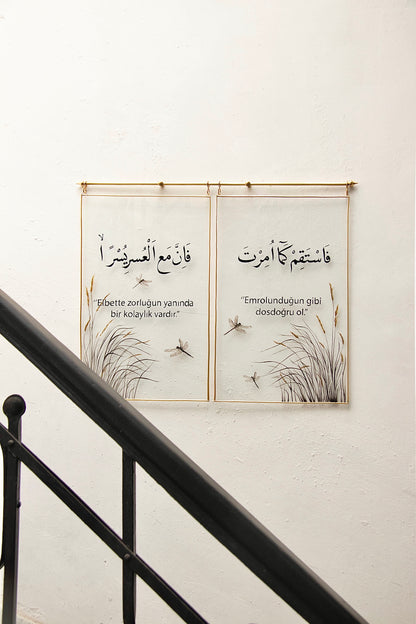 فَاِنَّ مَعَ الْعُسْرِ يُسْرًا
"Elbette zorluğun yanında
bir kolaylık vardır."
فَاسْتَقِمْ كَمَٓا اُمِرْتَ
"Emrolunduğun gibi
dosdoğru ol."